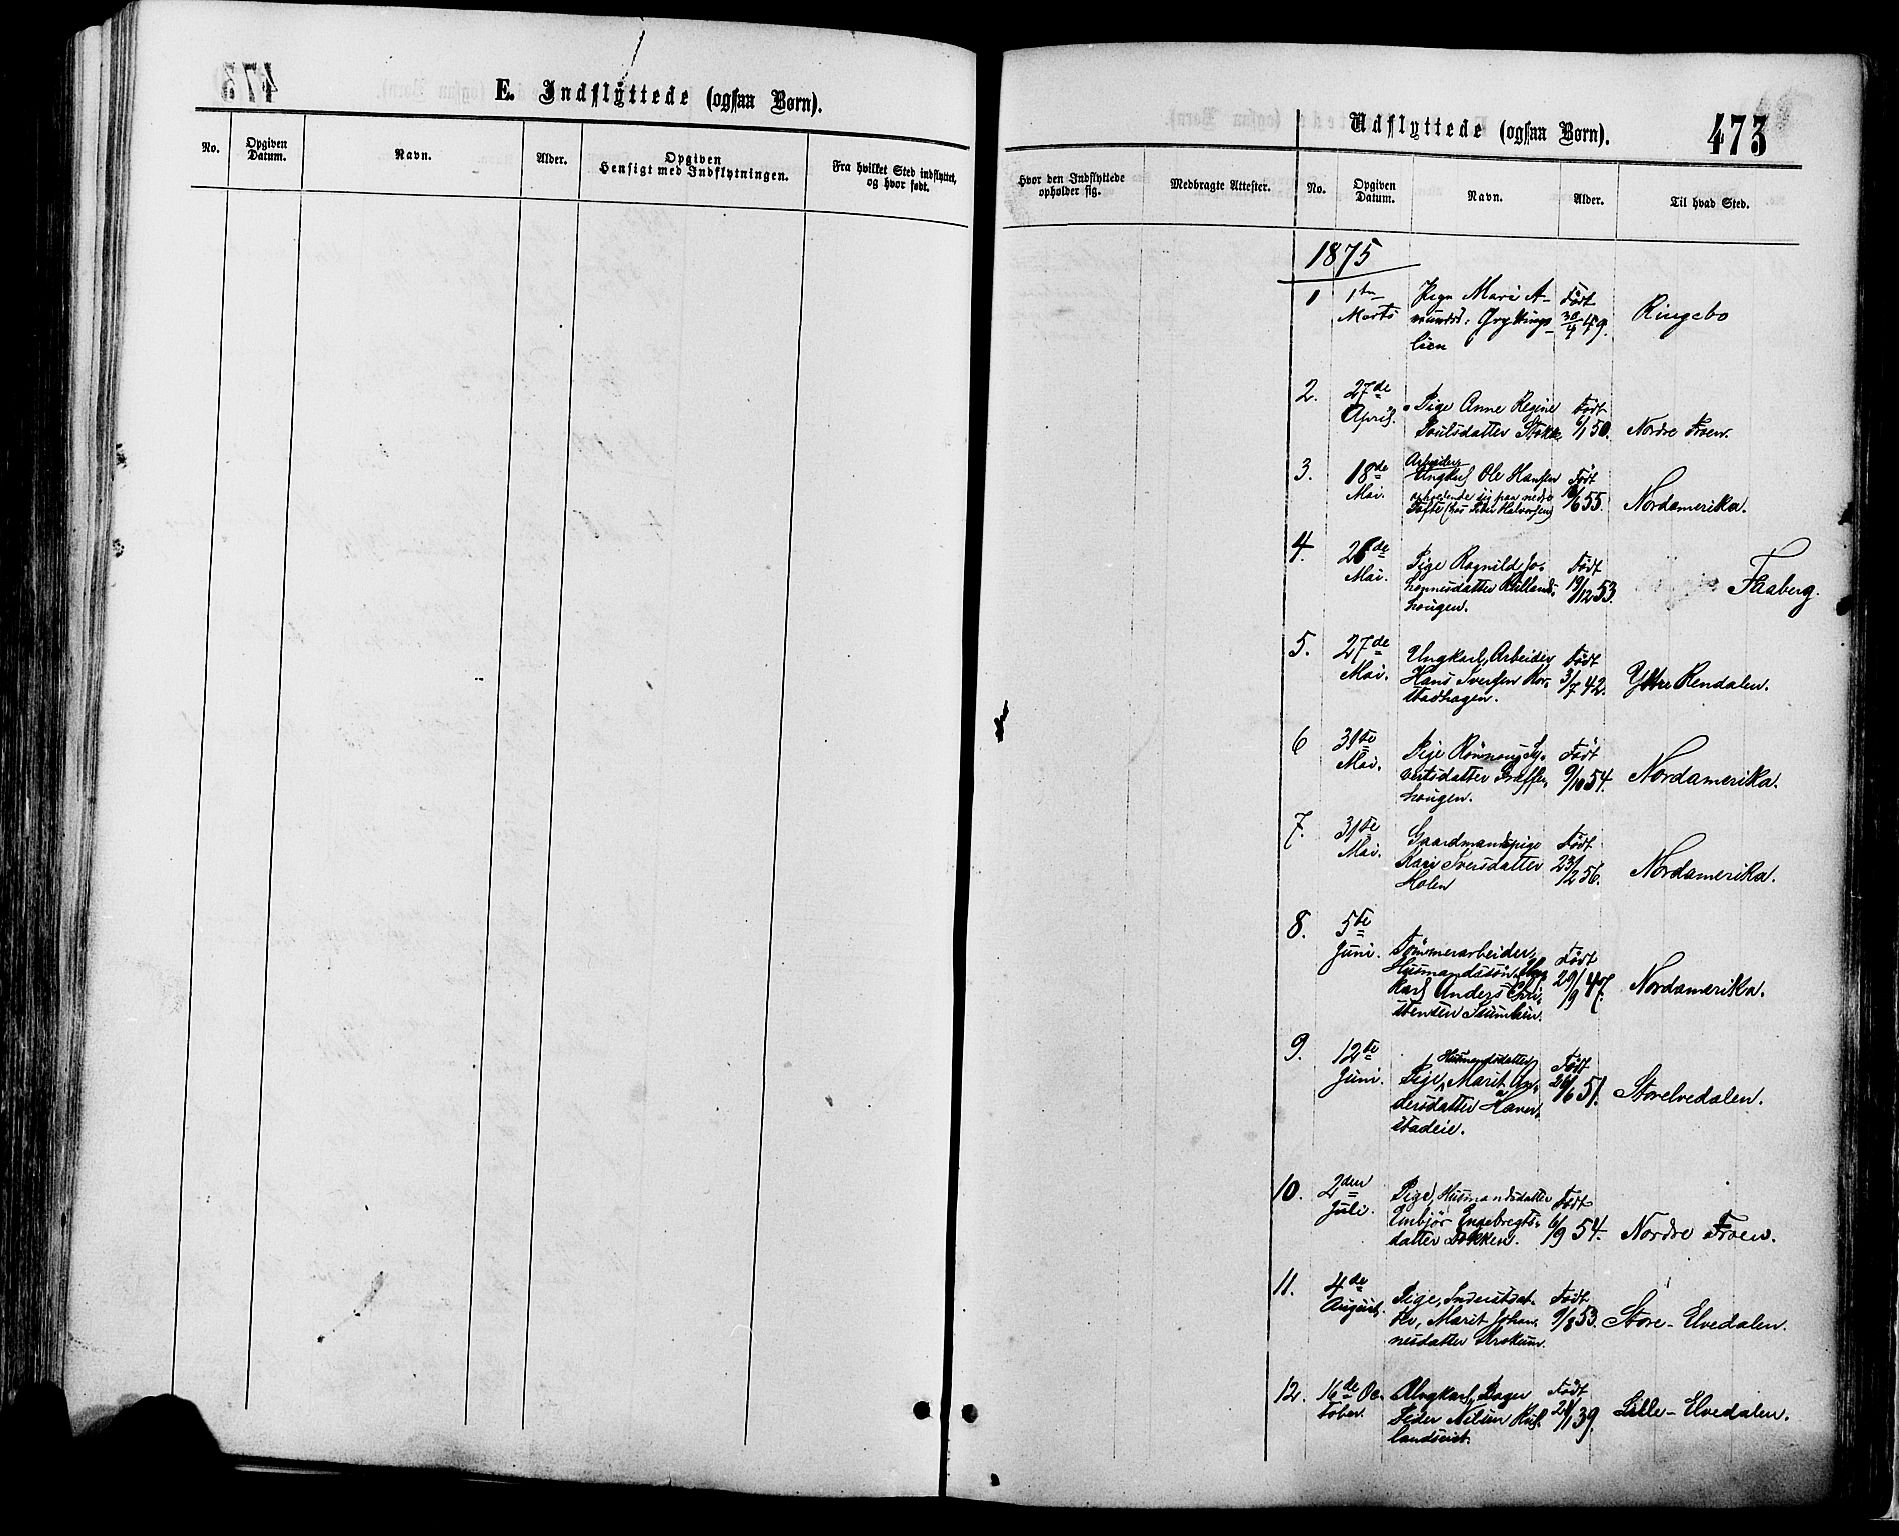 E. Indflyttede (ogsaa Børn).
No.
Opgiven
Datum.
Navn.
Alder.
Opgiven
Hensigt med Indflytningen.
Fra hvilket Sted indflyttet,
og hvor født.
Hvor den Indflyttede
opholder sig.
Medbragte Attester.
Udflyttede (ogsaa Børn).
473
No.
Opgiven
Datum.
Navn.
Alder.
Til hvad Sted.
1875
1 1ste Marts
Pige Mari A-
mundsd. Gryttings-
lien
Født
30/4 49.
Ringebo
2. 27de April.
Pige Anne Regine
Poulsdatter Stokke
Født
6/1 50.
Nordre Froen.
3. 18de Mai.
Arbeider
Ungkarl Ole Hansen
opholdende sig paa nedre
Tofte (hos Peder Halvorsen)
Født
/6 55.
Nordamerika.
4. 26de Mai.
Pige Ragnild Jo-
hannesdatter
hougen.
Født
19/12 53.
Faaberg.
5. 27de Mai.
Ungkarl, Arbeider
Hans Iversen Kor-
stadhagen.
Født
3/7 42.
Ytre Rendalen.
6 31te Mai.
Pige Rønnoug Sy-
vertsdatter Graffer-
hougen.
Født
9/10 54.
Nordamerika.
7. 31te Mai.
Gaardmandspige
Kari Iversdatter
Holen
Født
23/2 56.
Nordamerika.
8. 5te Juni.
Tømmerarbeider,
Husmandssøn, Ung-
karl Anders Chri-
stensen
Født
29/9 47.
Nordamerika.
9. 12te Juni.
Husmandsdatter
Pige, Marit An-
dersdatter Haver-
stadeie.
Født
26/6 51.
Storelvedalen.
10. 2den Juli.
Pige, Husmandsdatter
Embjør Engebregts-
datter Bakken.
Født
6/9 54.
Nordre Froen.
11. 4de August.
Pige, Inderstdat-
ter, Marit Johan-
nesdatter
Født
9/8 53.
Store-Elvedalen.
12. 16de October.
Ungkarl, Bager
Peder Nilsen Rul-
landseiet.
Født
21/1 39.
Lille-Elvedalen.